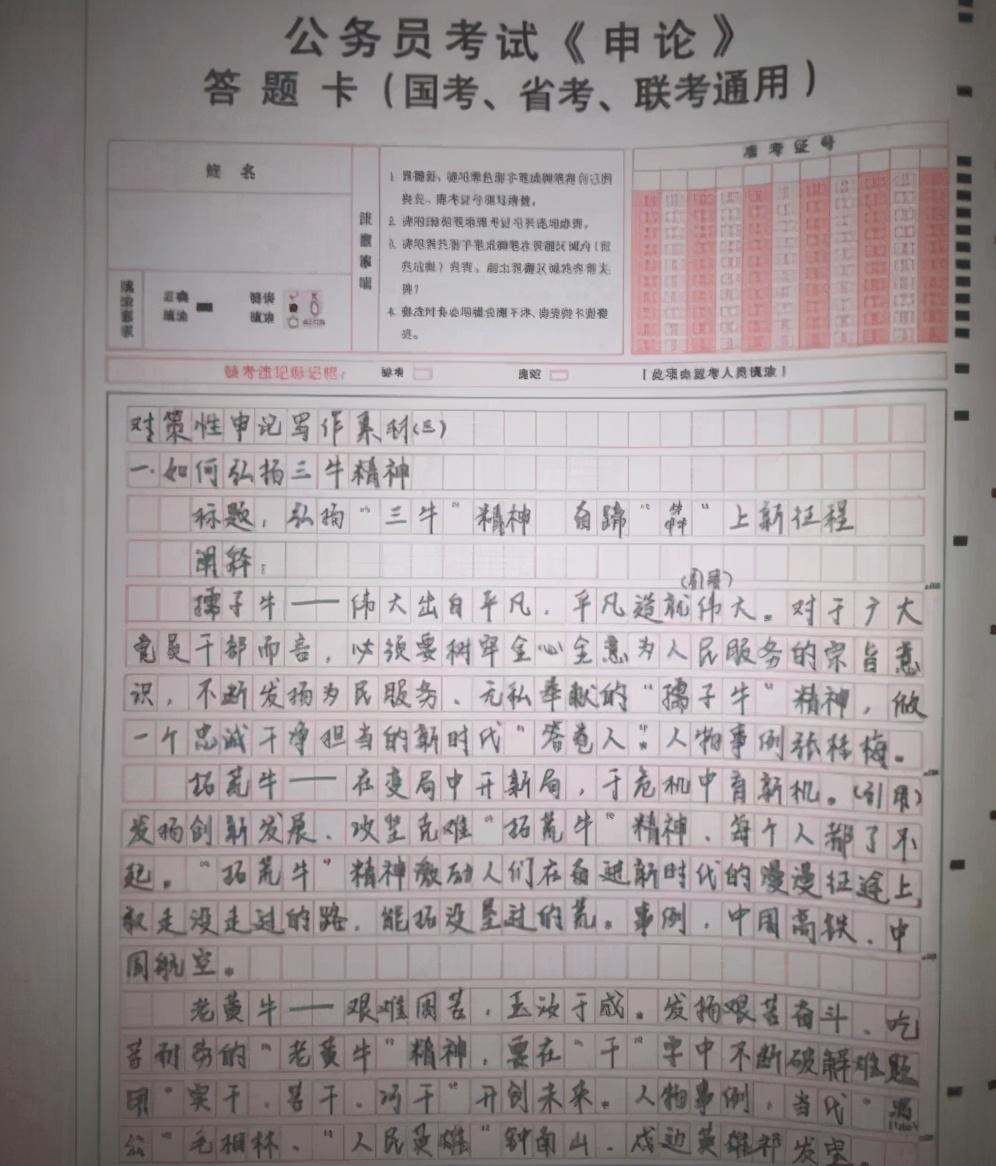 公务员考试《申论》
答题卡（国考、省考、联考通用）
姓名
准考证号
注意事项
正确填涂
错误填涂
缺考
对策性申论写作素材(三)
一.如何弘扬三牛精神
标题，弘扬"三牛"精神 奋蹄"犇"上新征程
阐释：
(引用)
孺子牛——伟大出自平凡，平凡造就伟大。对于广大
党员干部而言，必须要树牢全心全意为人民服务的宗旨意
识，不断发扬为民服务、无私奉献的"孺子牛"精神，做
一个忠诚干净担当的新时代"答卷人"。人物事例张桂梅。
拓荒牛——在变局中开新局，于危机中育新机。(引用)
发扬创新发展、攻坚克难"拓荒牛"精神、每个人都了不
起。"拓荒牛"精神激励人们在奋进新时代的漫漫征途上，
敢走没走过的路，能拓没垦过的荒。事例，中国高铁、中
国航空。
老黄牛——艰难困苦，玉汝于成。发扬艰苦奋斗、吃
苦耐劳的"老黄牛"精神，要在"干"字中不断破解难题
用"实干、苦干、巧干"开创未来。人物事例，当代"愚
公"毛相林、"人民英雄"钟南山、戍边英雄祁发宝。